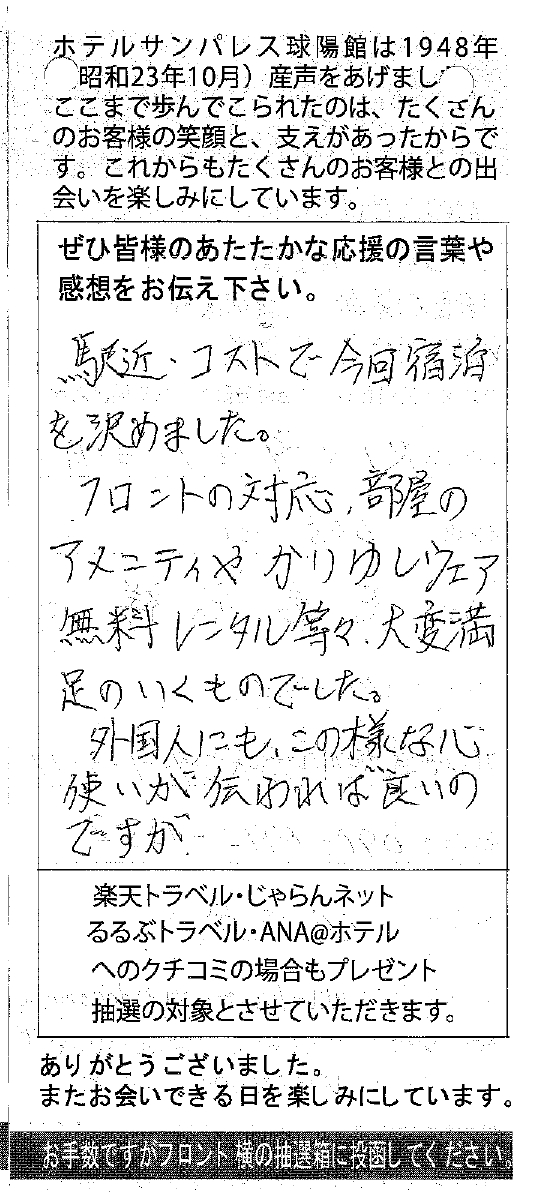 ホテルサンパレス球陽館は1948年
昭和23年10月）産声をあげまし
ここまで歩んでこられたのは、たくさん
のお客様の笑顔と、支えがあったからで
す。これからもたくさんのお客様との出
会いを楽しみにしています。
ぜひ皆様のあたたかな応援の言葉や
感想をお伝え下さい。
駅近・コストで今回宿泊
を決めました。
フロントの対応、部屋の
アメニティや かりゆしウェア
無料レンタル等々、大変満
足のいくものでした。
外国人にも、この様な心
使いが伝われば良いの
ですが
楽天トラベル・じゃらんネット
るるぶトラベル・ANA@ホテル
へのクチコミの場合もプレゼント
抽選の対象とさせていただきます。
ありがとうございました。
またお会いできる日を楽しみにしています。
お手数ですがフロント横の抽選箱に投函してください。